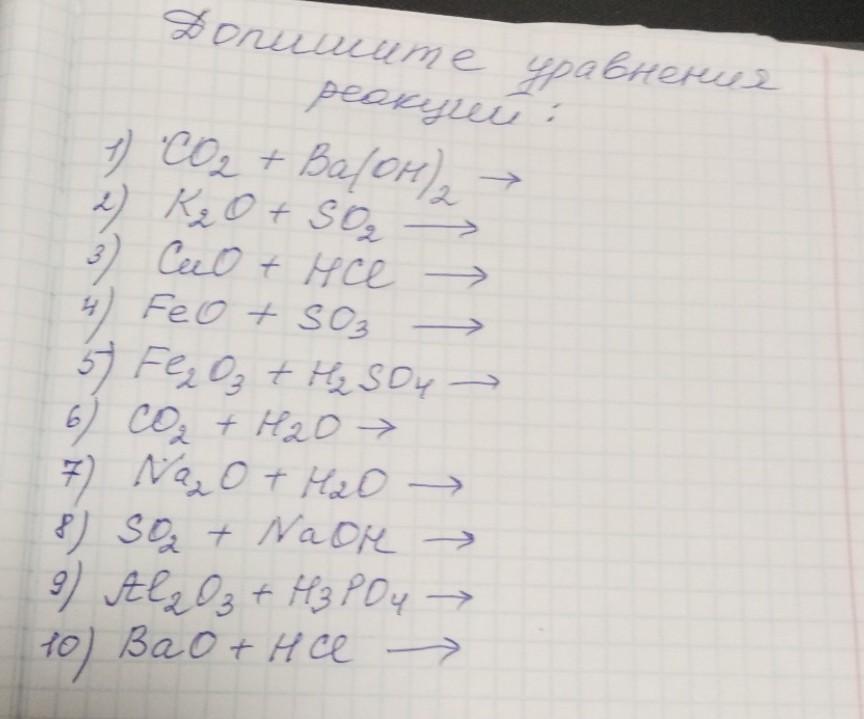 Допишите уравнения
реакций:
1) CO₂ + Ba(OH)₂ →
2) K₂O + SO₂ →
3) CuO + HCl →
4) FeO + SO₃ →
5) Fe₂O₃ + H₂SO₄ →
6) CO₂ + H₂O →
7) Na₂O + H₂O →
8) SO₂ + NaOH →
9) Al₂O₃ + H₃PO₄ →
10) BaO + HCl →